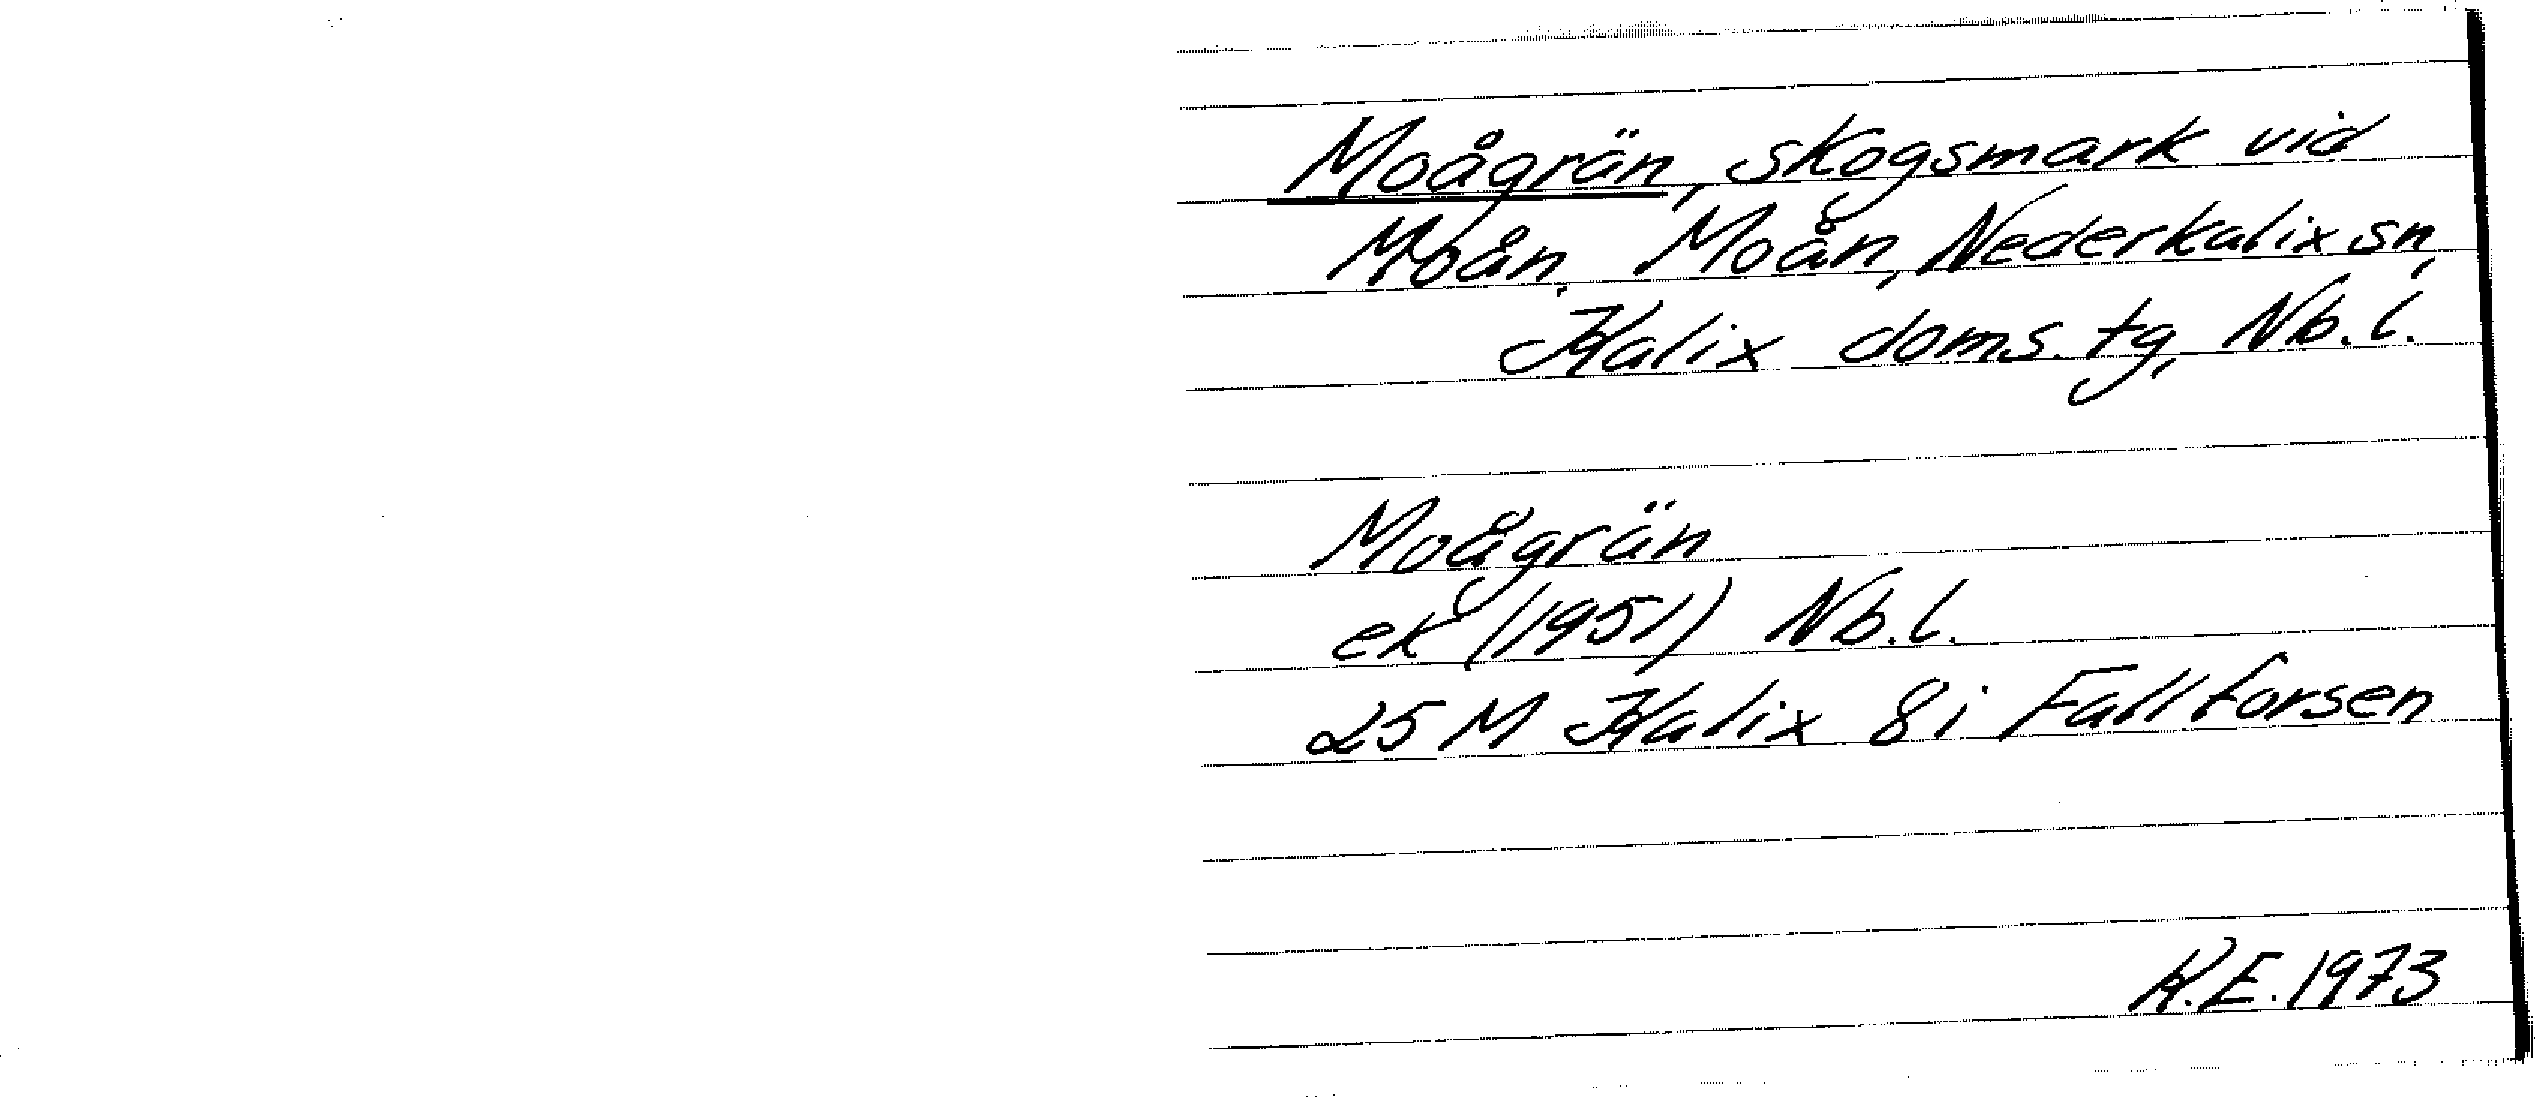 Moågrän, skogsmark vid
Moån. Moån, Nederkalix sn,
Kalix doms. tg, Nb. l.
Moågrän
ek (1951) Nb. l.
25 M Kalix 8i Fallforsen
K.E. 1973